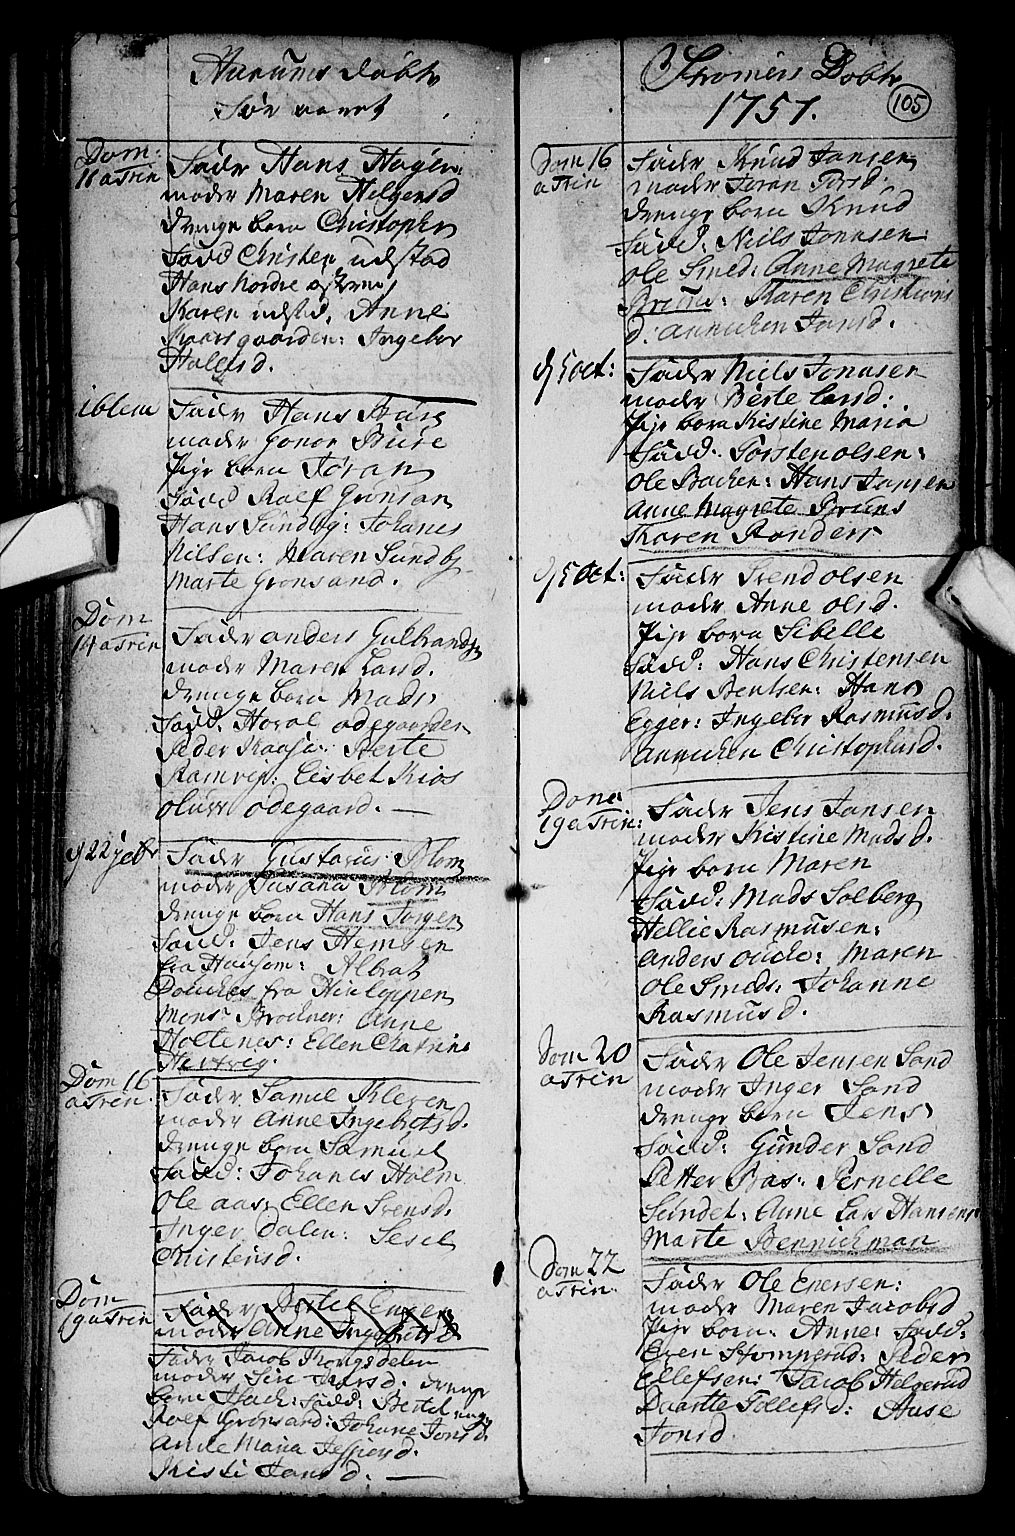 Hurums døbte
før aaret
Dom:
11 a Trin
Fader Hans Hagen:
moder Maren Helgersd
drenge barn Christopher
fadd Christen udstad
Hans Nordre
Karen udstd, Anne
Kaarsgaarden: Ingebor
Halfsd.
ibtem
Fader Hans
moder Gonor
Pige barn Jøran
fadd Rolf Grønsan
Hans Sundby: Johanes
Nilsen: Maren Sundby
Marte Grønsand.
Dom
14 a Trin
Fader anders Gulbrands
moder Maren Larsd.
drenge barn Mads
fadd: Haral ødegaarden
Peder Kaasse: Berte
Ramvig: Lisbet Kios
oluf ødegaard. —
d 22 7etbr
Fader Gustavus Blom
moder Susana Blom
drenge barn Hans Jørgen
fadd: Jens Hemsen
fra Hausom: Albrat
fra
Mons Brochner: Anne
Holtenes: Ellen Chatrine
Hertvig.
Dom 16
a Trin.
Fader Samuel Kleven
moder Anne Ingebretsd.
drenge barn Samuel
fadd: Johanes Holm
Ole aas, Ellen Svensd.
Inger Dalen: Sesel
Christensd.
Dom
19 a Trin
Fader Bertel Enger
moder Anne Ingebretsd
Fader Jacob Kongsdelen
moder Siri Larsd. drenge
barn Isach: fadd: Bertel enger
Rolf Grønsand: Johane Jonsd
Anne Maria Jespersd.
Kisti Jansd. —
Strømens Døbte
1757.
105
Dom 16
a Trin
Fader Knud Jansen
moder Joran Persd.
drenge barn Knud
Fadd: Niels Jonasen:
Ole Smed: Anne Magrete
Bruns: Karen Christians
d: annichen Jansd.
d 5 oct:
Fader Niels Jonasen
moder Berte Larsd:
Pige barn Kistine Maria
Fadd: Torsten olsen:
Ole Backen: Hans Jansen
Anne Magrete Bruns
Karen Randers
d 5 Oct:
Fader Svend olsen
moder Anne olsd.
Pige barn Sibelle
Fadd: Hans Christensen
Niels Bentsen: Hans
Egger: Ingebor Rasmusd.
Annichen Christophersd.
Dom
19 a Trin:
Fader Jens Jansen
moder Kistine Madsd.
Pige barn Maren
Fadd: Mads Solberg
Hellie Rasmusen:
Anders oude: Maren
Ole Smeds: Johanne
Rasmusd.
Dom 20
a Trin
Fader Ole Jensen Sand
moder Inger Sand
drenge barn Jens
Fadd: Gunder Sand
Petter Bas: Pernelle
Sundet: Anne Lars Hansens
Marte Bennichman
Dom 22
a Trin.
Fader Ole Eversen:
moder Maren Jacobsd
Pige barn: Anne: fadd:
Even Stomperud: Peder
Ellefsen: Jacob Helgerud
Daartte Tollefsd: Aase
Jonsd.